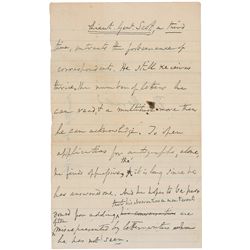 Lieut. Genl. Scott, a third
time, intreats the forbearance of
correspondents. He still receives
twice, the number of letters he
can read, & a multitude more than
he can acknowledge. To open
applications for autographs, alone,
he finds oppressive, & it is long since he
has answered one. And he hopes to be par-
doned for adding, that his
often misrepresented by letter-writers whom
he has not seen.